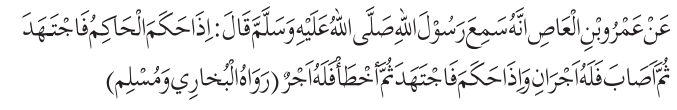 عَنْ عَمْرِو بْنِ الْعَاصِ اَنَّهُ سَمِعَ رَسُوْلَ اللهِ صَلَّى اللهُ عَلَيْهِ وَسَلَّمَ قَالَ : اِذَا حَكَمَ الْحَاكِمُ فَاجْتَهَدَ
ثُمَّ اَصَابَ فَلَهُ اَجْرَانِ وَاِذَا حَكَمَ فَاجْتَهَدَ ثُمَّ اَخْطَأَ فَلَهُ اَجْرٌ (رَوَاهُ الْبُخَارِي وَمُسْلِم)